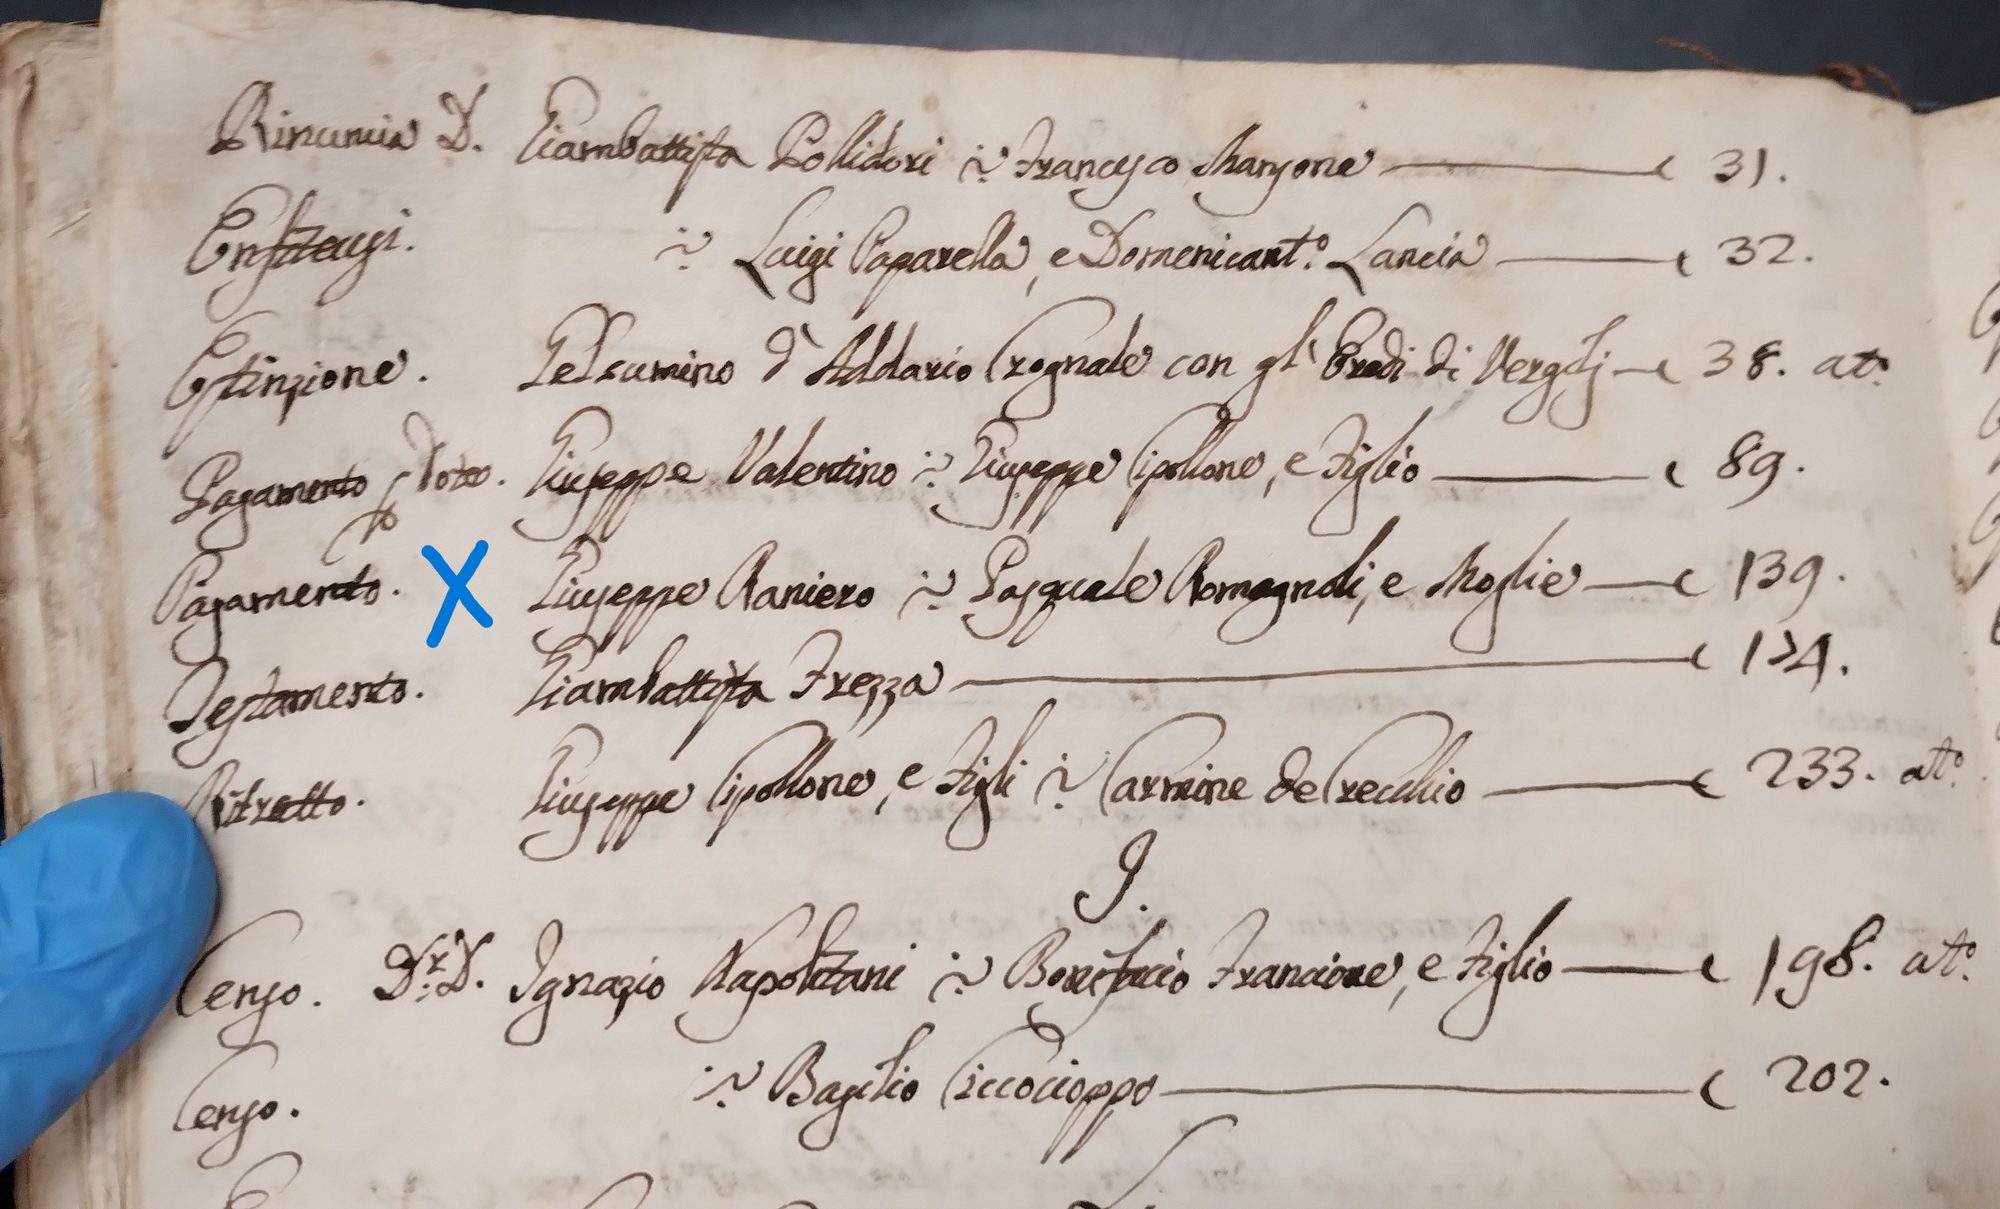 Rinuncia D. Giambattista Pollidori ÷ Francesco Manzone — 31.
Enfiteusi. ÷ Luigi Paparella, e Domenicant.º Lancia — 32.
Estinzione. Gelsumino d'Addario Crognale con gl' Eredi di Vergilj — 38. at.º
Pagamento Dote. Giuseppe Valentino ÷ Giuseppe Cipollone, e Figlio — 89.
Pagamento. X Giuseppe Raniero ÷ Pasquale Romagnoli, e Moglie — 139.
Testamento. Giambattista Frezza —
Ritratto. Giuseppe Cipollone, e Figli ÷ Carmine del Vecchio — 233. at.º
I.
Censo. D.r D. Ignazio Napolitani ÷ Bonifacio Francione, e Figlio — 198. at.º
Censo. ÷ Basilio Ciccocioppo — 202.